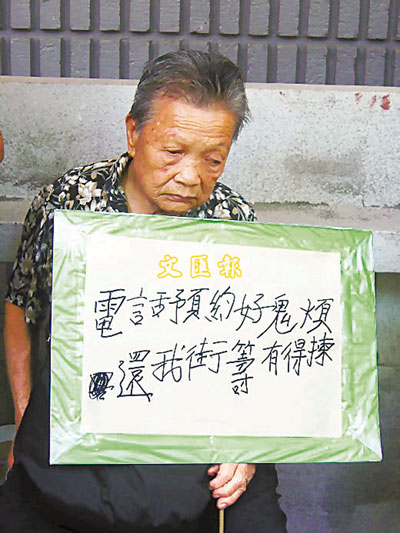 文匯報
電話預約好鬼煩
還我街籌有得揀